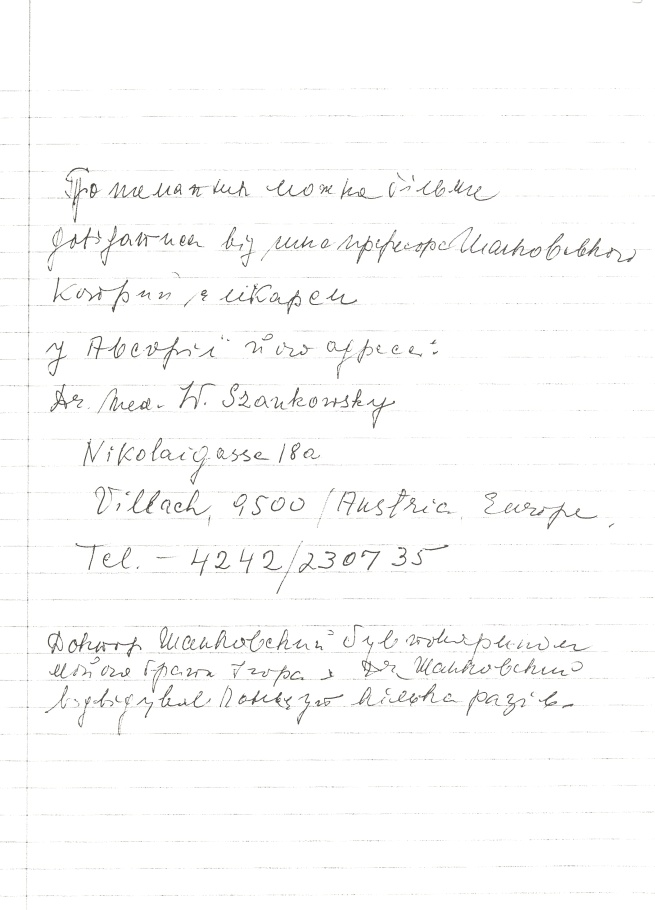 можна більше
від професора Шанковського
котрий є лікарем
у Австрії його адреса:
Dr. med. W. Szankowsky
Nikolaigasse 18a
Villach, 9500 / Austria, Europe,
Tel. – 4242/230735
Доктор Шанковський був товаришом
мойого брата Ігора. Др Шанковський
відвідував кілька разів.